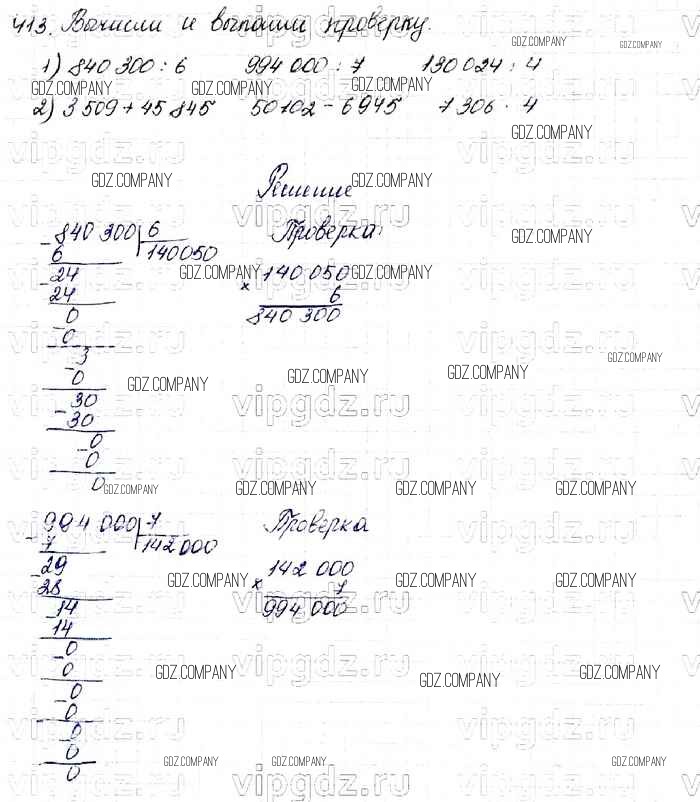 413. Вычисли и выполни проверку.
1) 840 300 : 6 994 000 : 7 130 024 : 4
2) 3 509 + 45 845 50 102 - 6 945 7 306 · 4
Решение
840 300 6 Проверка:
- 6 140050
24 140 050
- 24 × 6
0 840 300
- 0
3
- 0
30
- 30
0
- 0
0
994 000 7 Проверка
- 7 142000
29 142 000
- 28 × 7
14 994 000
- 14
0
- 0
0
- 0
0
- 0
0
GDZ.COMPANY
vipgdz.ru